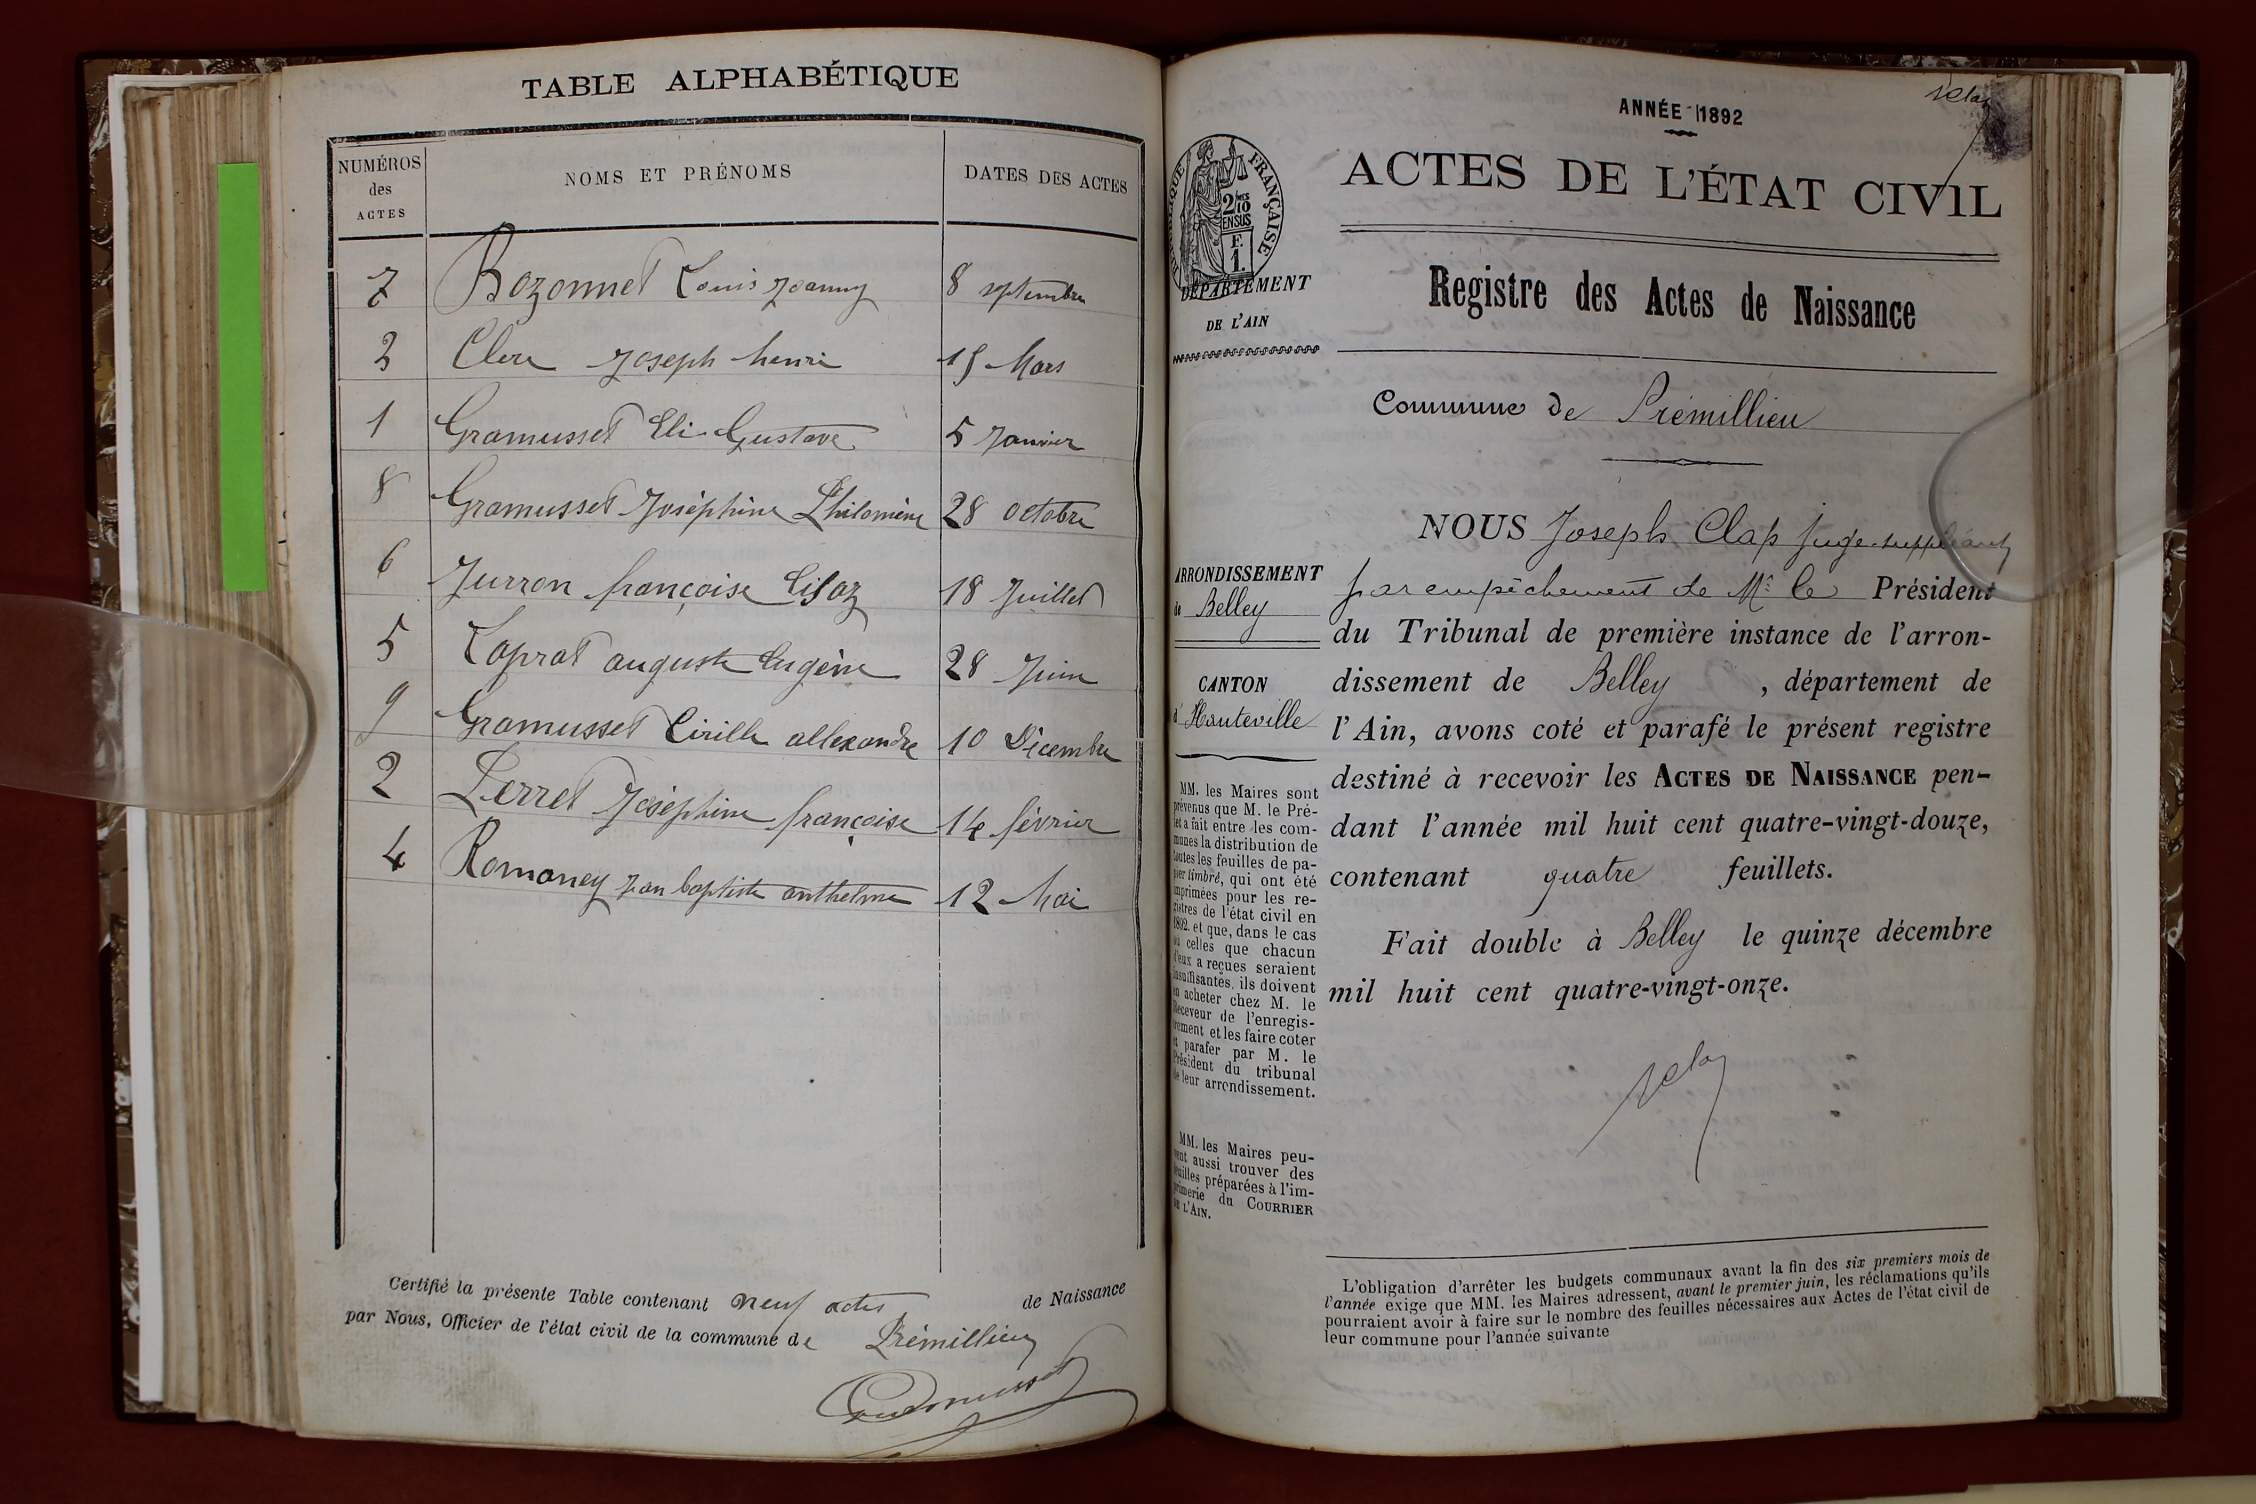 TABLE ALPHABÉTIQUE
NUMÉROS des ACTES NOMS ET PRÉNOMS DATES DES ACTES
7 Bozonnet Louis Joanny 8 septembre
3 Clerc Joseph henri 15 Mars
1 Gramusset Eli Gustave 5 Janvier
8 Gramusset Joséphine Philomène 28 octobre
6 Jurron françoise 18 Juillet
5 Laprat auguste Eugène 28 Juin
9 Gramusset Cirille allexandre 10 Décembre
2 Perret Joséphine françoise 14 février
4 Romaney jean baptiste anthelme 12 Mai
Certifié la présente Table contenant neuf actes de Naissance
par Nous, Officier de l'état civil de la commune de Prémillieu
ANNÉE 1892
ACTES DE L'ÉTAT CIVIL
RÉPUBLIQUE FRANÇAISE
2/10 EN SUS
E.
1.
DÉPARTEMENT
DE L'AIN
Registre des Actes de Naissance
Commune de Prémillieu
ARRONDISSEMENT
de Belley
CANTON
d'Hauteville
MM. les Maires sont
prévenus que M. le Pré-
fet a fait entre les com-
munes la distribution de
toutes les feuilles de pa-
pier timbré, qui ont été
imprimées pour les re-
gistres de l'état civil en
1892, et que, dans le cas
où celles que chacun
d'eux a reçues seraient
insuffisantes, ils doivent
en acheter chez M. le
Receveur de l'enregis-
trement et les faire coter
et parafer par M. le
Président du tribunal
de leur arrondissement.
MM. les Maires peu-
vent aussi trouver des
feuilles préparées à l'im-
primerie du COURRIER
DE L'AIN.
NOUS Joseph Clap juge suppléant
par empêchement de Mr le Président
du Tribunal de première instance de l'arron-
dissement de Belley, département de
l'Ain, avons coté et parafé le présent registre
destiné à recevoir les ACTES DE NAISSANCE pen-
dant l'année mil huit cent quatre-vingt-douze,
contenant quatre feuillets.
Fait double à Belley le quinze décembre
mil huit cent quatre-vingt-onze.
L'obligation d'arrêter les budgets communaux avant la fin des six premiers mois de
l'année exige que MM. les Maires adressent, avant le premier juin, les réclamations qu'ils
pourraient avoir à faire sur le nombre des feuilles nécessaires aux Actes de l'état civil de
leur commune pour l'année suivante